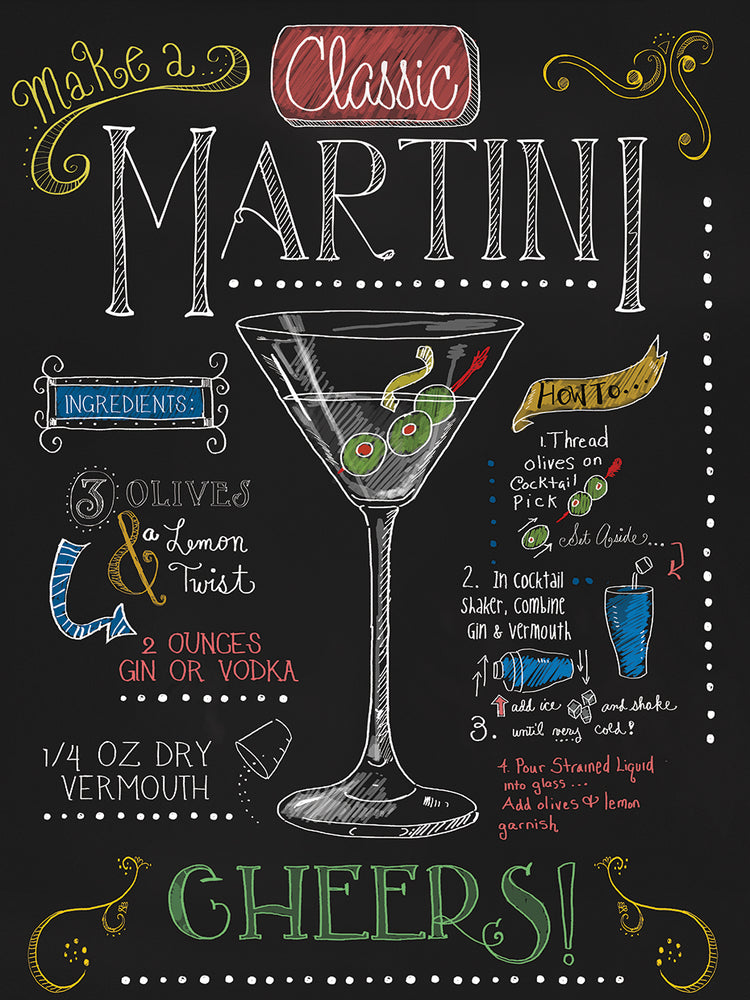 Make a
Classic
MARTINI
INGREDIENTS:
3 OLIVES
& a Lemon
Twist
2 OUNCES
GIN OR VODKA
1/4 OZ DRY
VERMOUTH
HOW TO...
1. Thread
olives on
Cocktail
Pick
Set Aside...
2. In Cocktail
shaker, combine
Gin & vermouth
add ice and shake
3. until very cold!
4. Pour Strained Liquid
into glass...
Add olives & lemon
garnish
CHEERS!